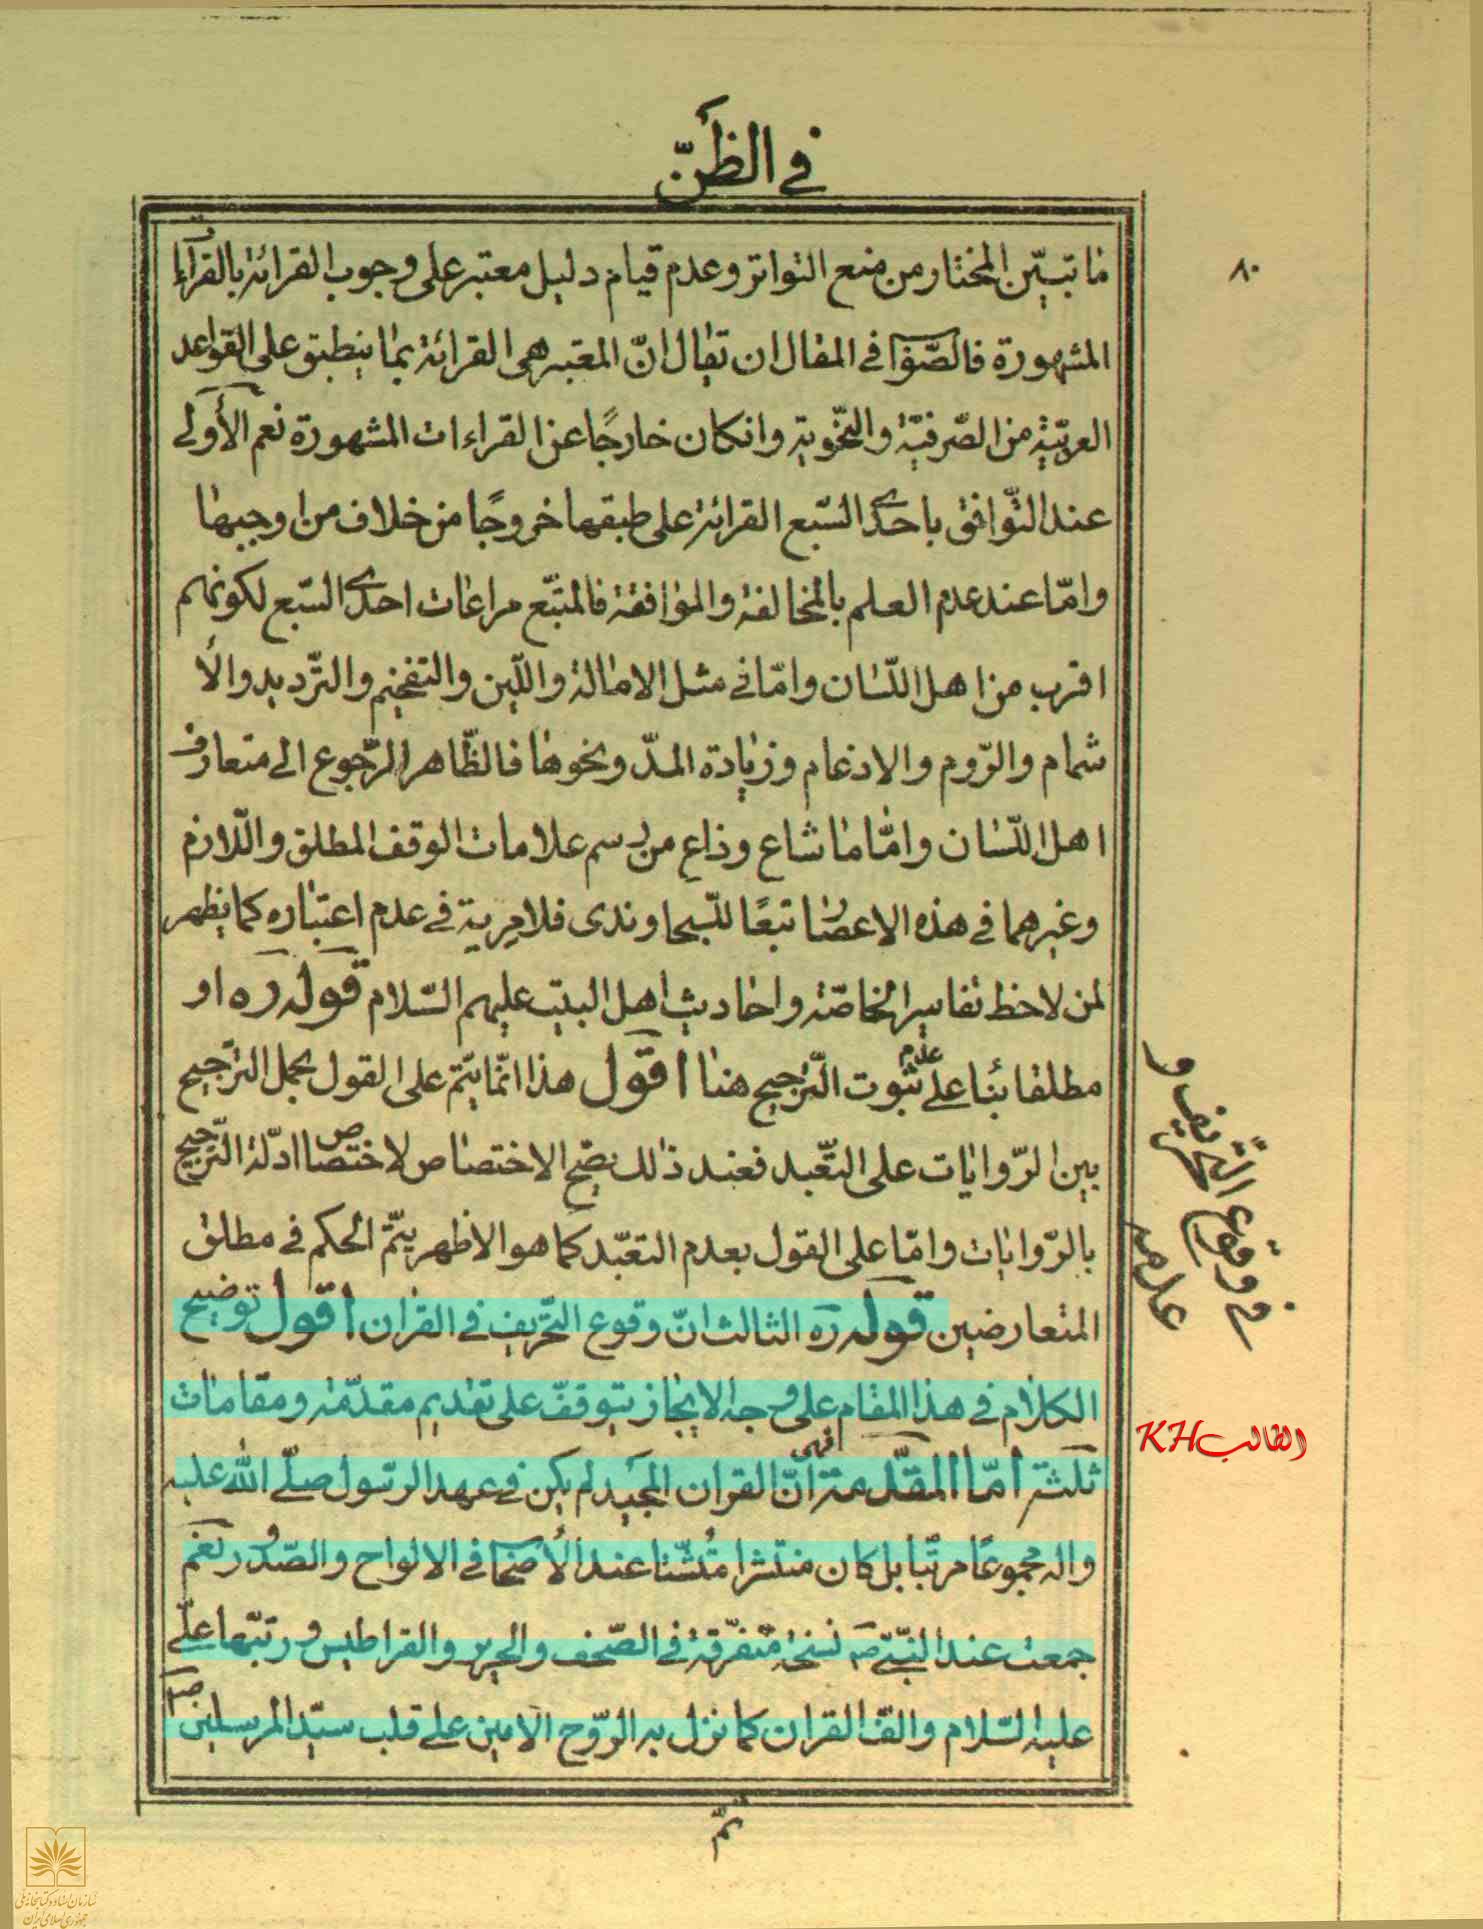 في الظنّ
٨٠
ما تبيّن المختار من منع التواتر وعدم قيام دليل معتبر على وجوب القرائة بالقرآءا
المشهورة فالصّوٓا في المقال ان تقال انّ المعتبر هي القرائة بما ينطبق على القواعد
العربيّة من الصّرفيّة والنّحوية وانكان خارجًا عن القراءات المشهورة نعم الأولى
عند التّوافق باحدى السّبع القرائة على طبقها خروجًا من خلاف من اوجبها
وامّا عند عدم العلم بالمخالفة والموافقة فالمتّبع مراعات احدى السّبع لكونهم
اقرب من اهل اللّسان وامّا في مثل الامالة واللّين والتفخيم والتّرديد والأ
شمام والرّوم والادغام وزيادة المدّ ونحوها فالظّاهر الرّجوع الى متعارف
اهل اللّسان وامّا ما شاع وذاع من رسم علامات الوقف المطلق واللّازم
وغيرهما في هذه الاعصا تبعًا للسّجاوندى فلا مرية في عدم اعتباره كما يظهر
لمن لاحظ تفاسير الخاصّة واحاديث اهل البيت عليهم السّلام قوله ره او
مطلقا بناء على عدم ثبوت التّرجيح هنا اقول هذا انّما يتمّ على القول بحمل التّرجيح
بين الرّوايات على التعّبد فعند ذلك يصّح الاختصاص لاختصاص ادلّة التّرجيح
بالرّوايات وامّا على القول بعدم التعبّد كما هو الاظهر يتمّ الحكم في مطلق
المتعارضين قوله ره الثالث انّ وقوع التّحريف في القران اقول توضيح
الكلام في هذا المقام على وجه الايجاز يتوقفّ على تقديم مقدّمة ومقامات
ثلثة امّا المقدّمة فهى انّ القران المجيد لم يكن في عهد الرّسول صلّى الله عليه
واله مجموعًا مرتّبا بل كان منتشرا متشّتتا عند الأصحا في الالواح والصّدور نعم
جمعت عند النّبيّ ص نسخة متفرّقة في الصّحف والحرير والقراطيس ورتبّها علىّ
عليه السّلام والّف القران كما نزل به الرّوح الامين على قلب سيّد المرسلين ص
ثمّ
في وقوع التّحريف و
عدمه
الطالب KH
سازمان اسناد و کتابخانه ملی
جمهوری اسلامی ایران